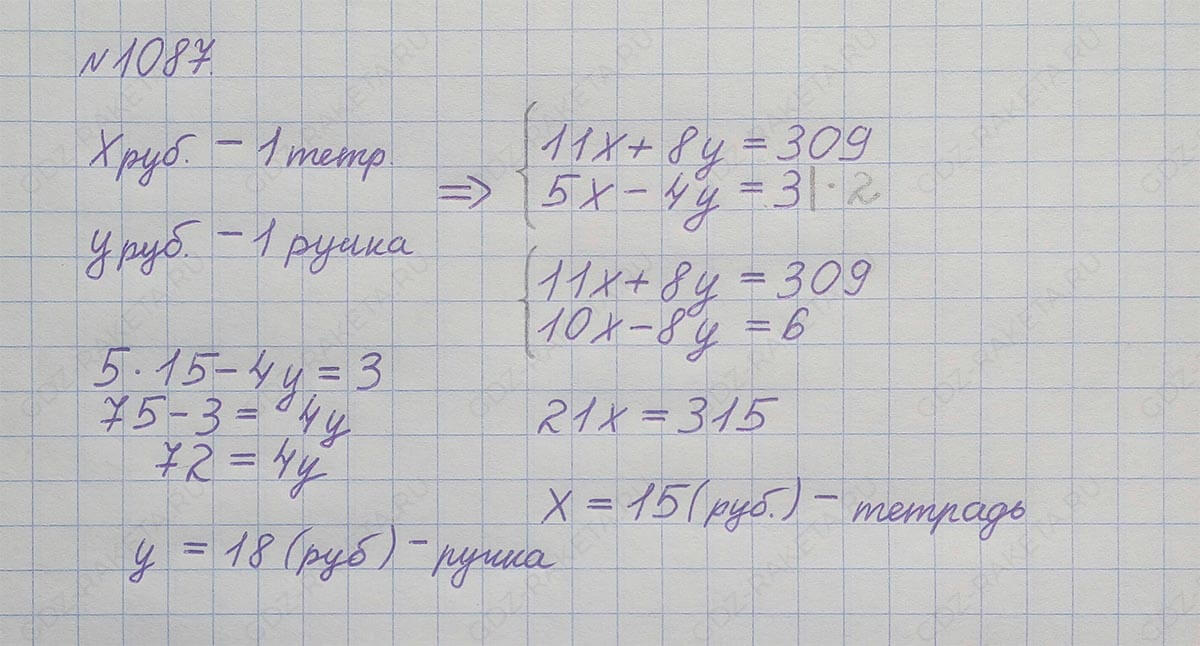 №1087.
х руб. – 1 тетр.
у руб. – 1 ручка
⇒
11х + 8у = 309
5х – 4у = 3|·2
11х + 8у = 309
10х – 8у = 6
21х = 315
х = 15 (руб.) – тетрадь
5·15 – 4у = 3
75 – 3 = 4у
72 = 4у
у = 18 (руб) – ручка
GDZ-RAKETA.RU